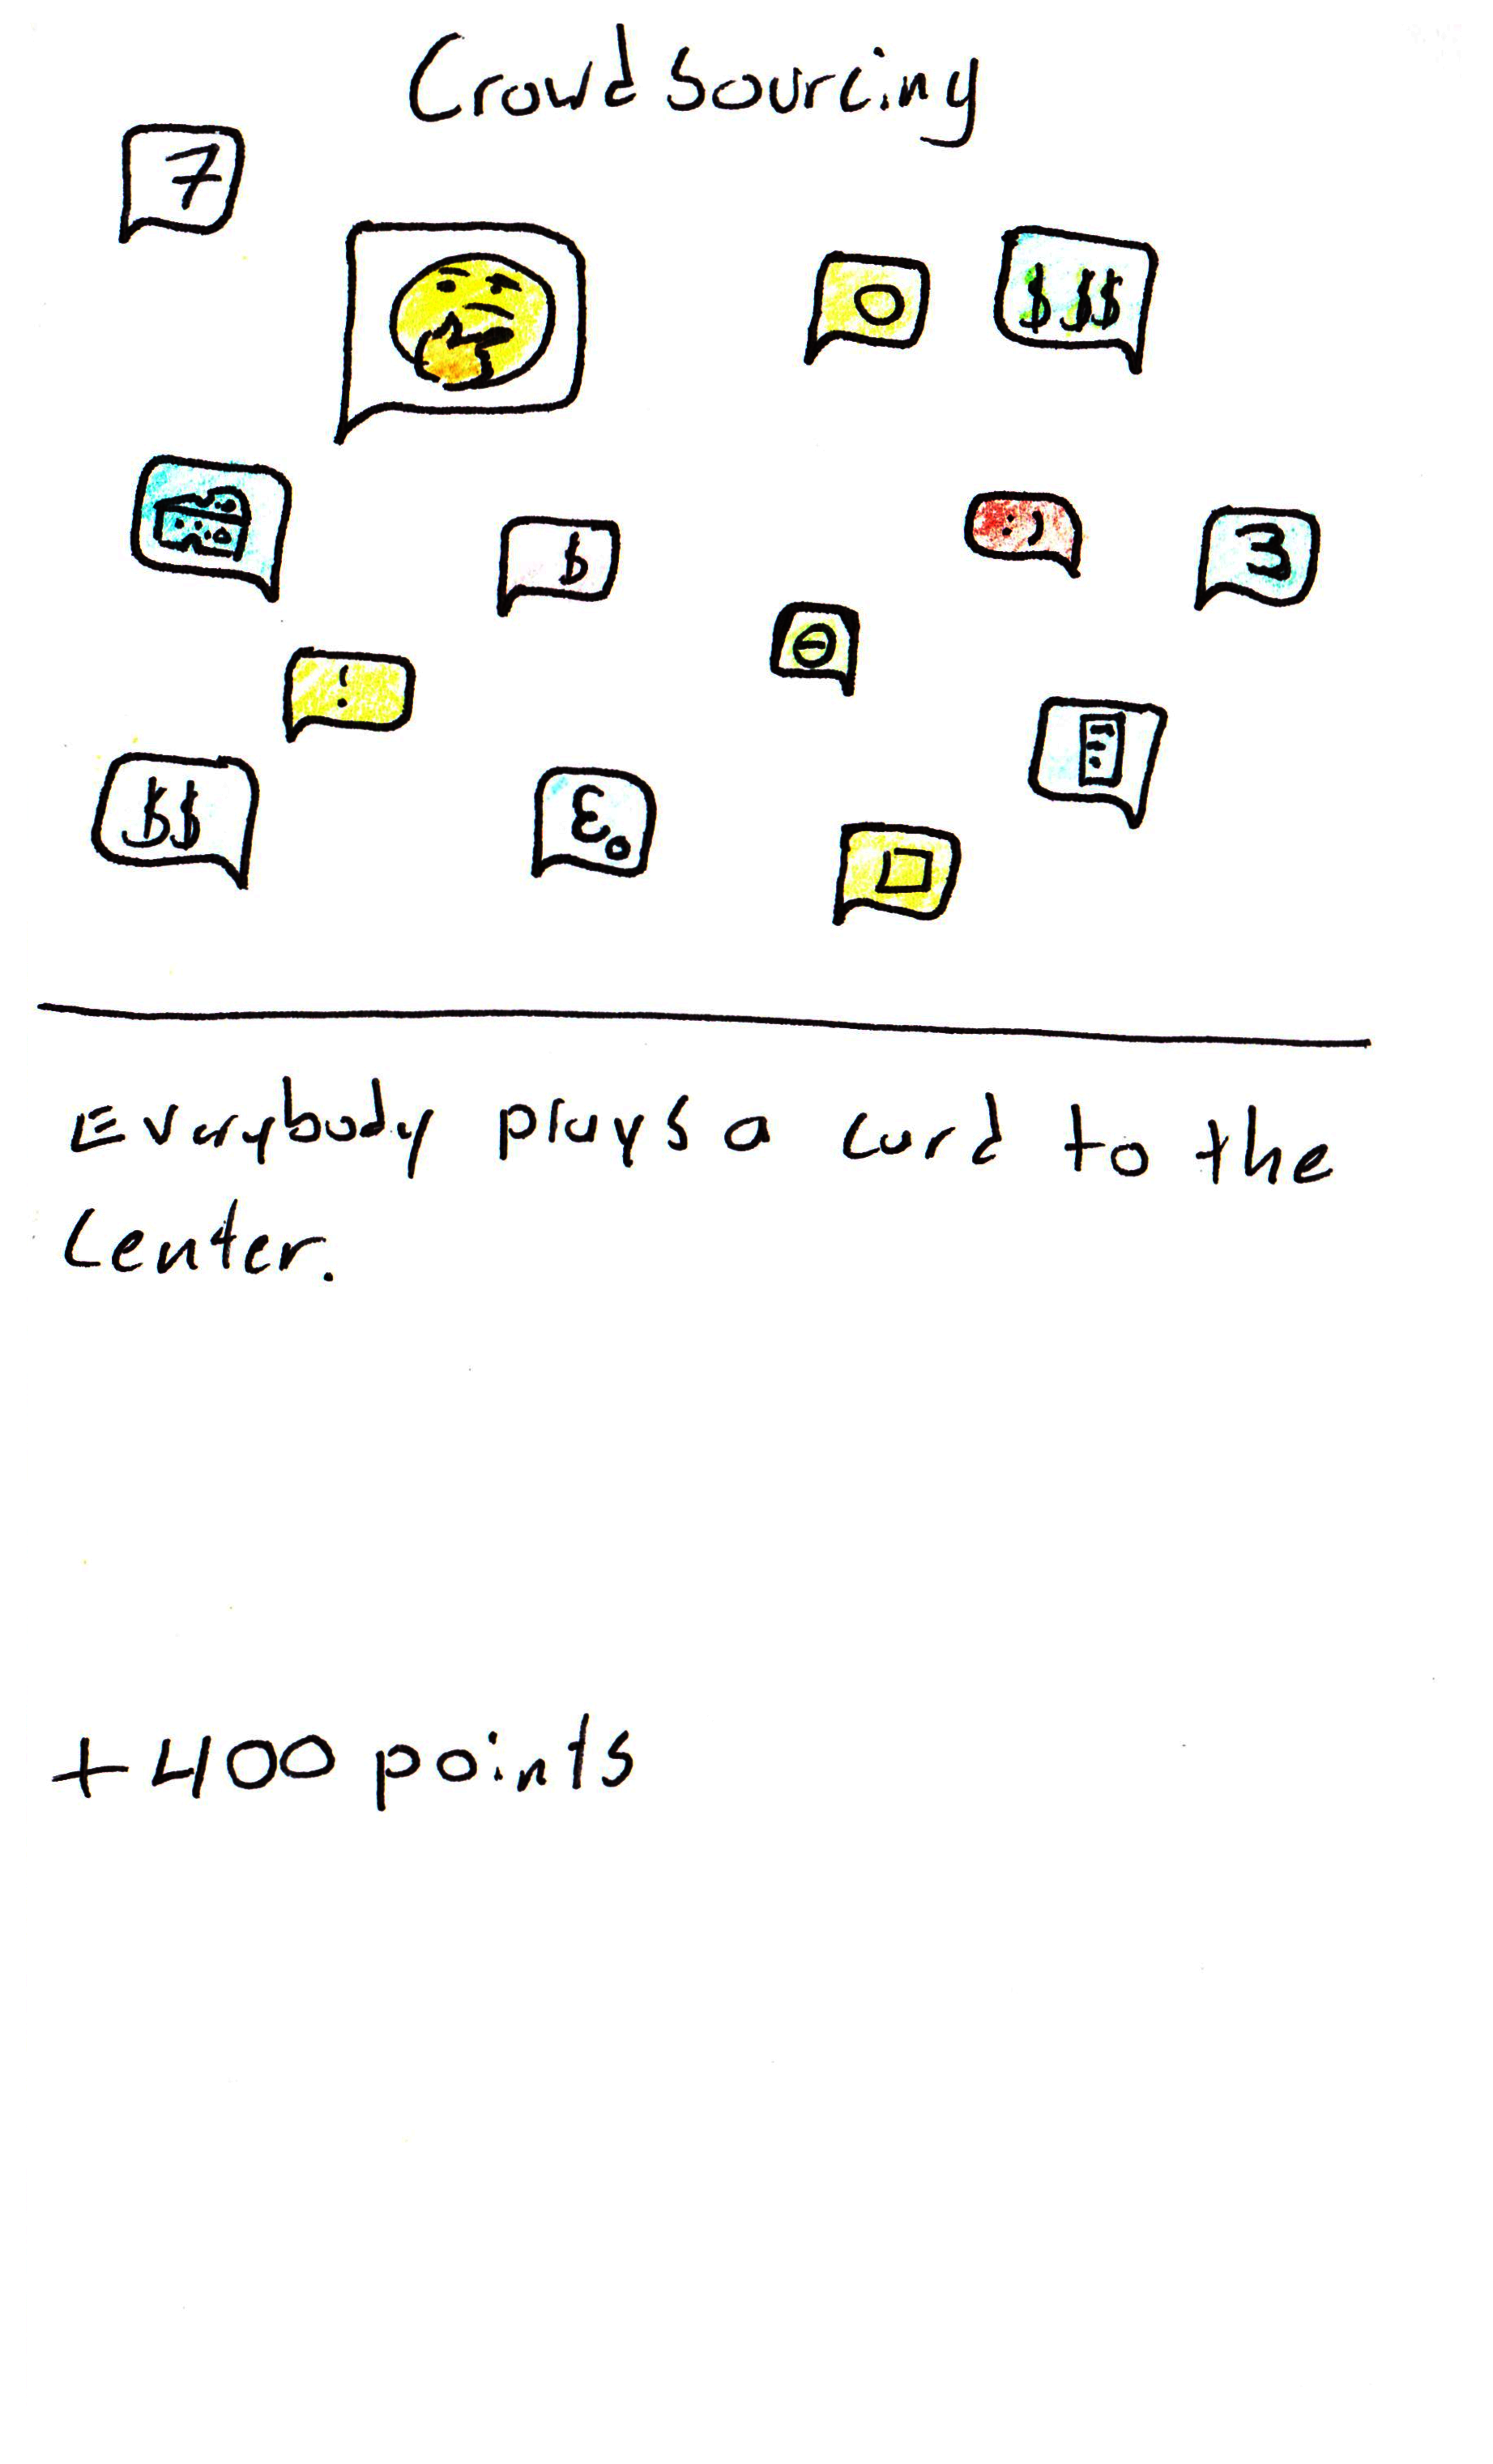 Crowd Sourcing
7
$$$
$
:)
3
!
$$
ε₀
Everybody plays a card to the
Center.
+400 points